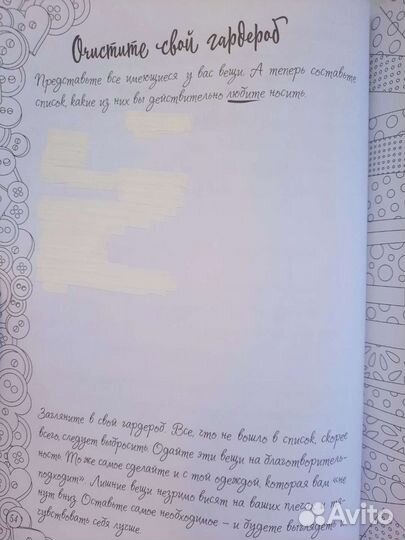 Очистите свой гардероб
Представьте все имеющиеся у вас вещи. А теперь составьте
список, какие из них вы действительно любите носить.
Загляните в свой гардероб. Все, что не вошло в список, скорее
всего, следует выбросить. Отдайте эти вещи на благотворитель-
ность. То же самое сделайте и с той одеждой, которая вам «не
подходит». Лишние вещи незримо висят на ваших плечах и тя-
нут вниз. Оставьте самое необходимое – и будете выглядеть и
чувствовать себя лучше.
54
Avito